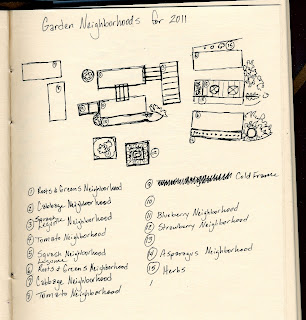 Garden Neighborhoods for 2011
① Roots & Greens Neighborhood
② Cabbage Neighborhood
③ Legume Neighborhood
④ Tomato Neighborhood
⑤ Squash Neighborhood
⑥ Roots & Greens Neighborhood
⑦ Cabbage Neighborhood
⑧ Tomato Neighborhood
⑨ Cold Frames
⑩
⑪ Blueberry Neighborhood
⑫ Strawberry Neighborhood
⑬
⑭ Asparagus Neighborhood
⑮ Herbs